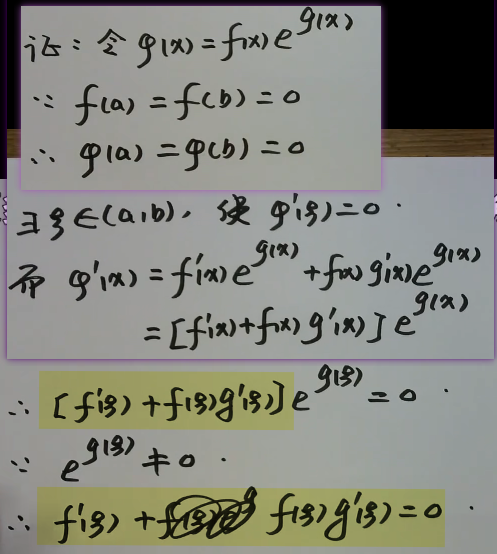 证：令 φ(x)=f(x)e^{g(x)}
∵ f(a)=f(b)=0
∴ φ(a)=φ(b)=0
∃ξ∈(a,b), 使 φ'(ξ)=0.
而 φ'(x)=f'(x)e^{g(x)}+f(x)g'(x)e^{g(x)}
=[f'(x)+f(x)g'(x)]e^{g(x)}
∴ [f'(ξ)+f(ξ)g'(ξ)]e^{g(ξ)}=0.
∵ e^{g(ξ)}≠0.
∴ f'(ξ)+f(ξ)g'(ξ)=0.